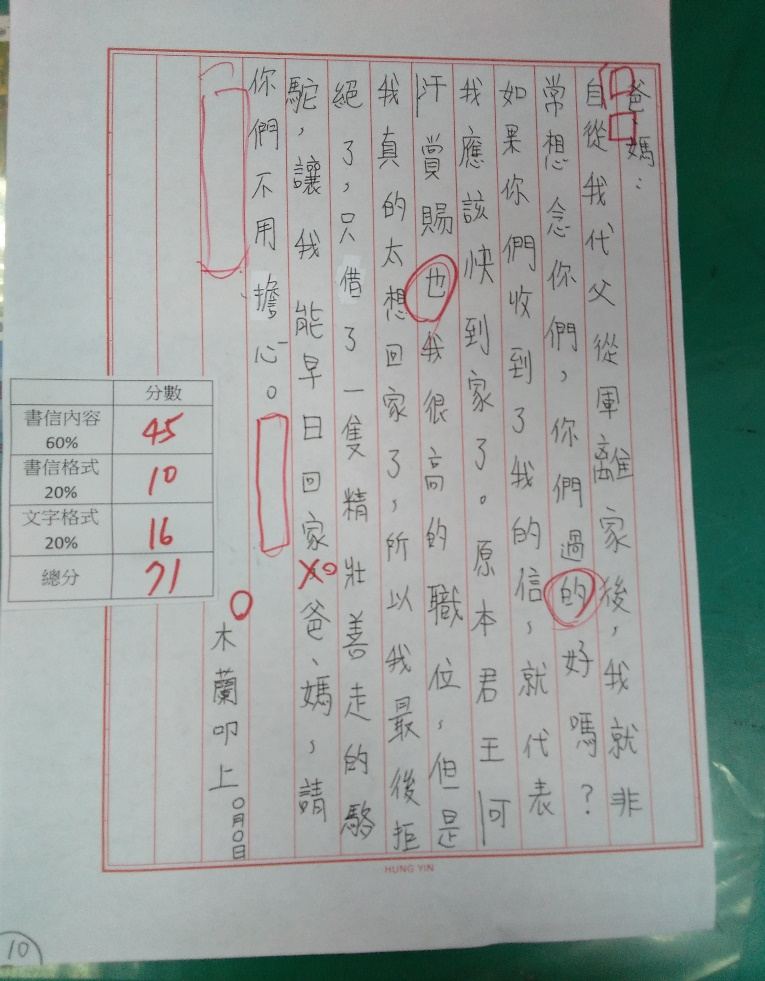 爸、媽：
自從我代父從軍離家後，我就非
常想念你們，你們過的好嗎？
如果你們收到了我的信，就代表
我應該快到家了。原本君王可
汗賞賜也我很高的職位，但是
我真的太想回家了，所以我最後拒
絕了，只借了一隻精壯善走的駱
駝，讓我能早日回家。爸、媽，請
你們不用擔心。
木蘭叩上
〇月〇日
分數
書信內容 60% 45
書信格式 20% 10
文字格式 20% 16
總分 71
HUNG YIN
10